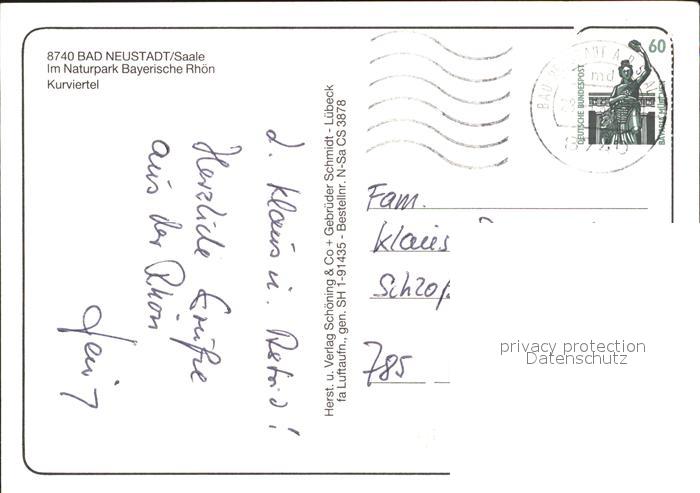 8740 BAD NEUSTADT/Saale
Im Naturpark Bayerische Rhön
Kurviertel
60
DEUTSCHE BUNDESPOST
BAVARIA MÜNCHEN
L. Klaus u. Astrid!
Herzliche Grüße
aus der Rhön
Herst. u. Verlag Schöning & Co + Gebrüder Schmidt - Lübeck
fa Luftaufn., gen. SH 1-91435 - Bestellnr. N-Sa CS 3878
Fam.
Klaus
Schlop
785
privacy protection
Datenschutz